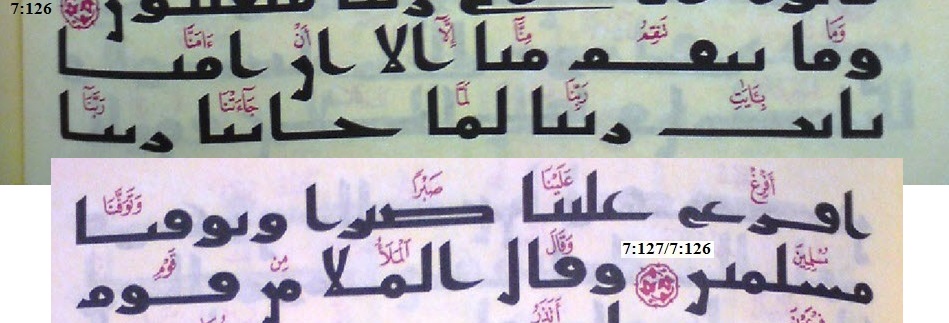 7:126
وَمَا تَنقِمُ مِنَّآ إِلَّآ أَنْ ءَامَنَّا
وما تنقم منا الا ان امنا
بِـَٔايَـٰتِ رَبِّنَا لَمَّا جَآءَتْنَا رَبَّنَآ
بايت ربنا لما جاتنا ربنا
أَفْرِغْ عَلَيْنَا صَبْرًا وَتَوَفَّنَا
افرغ علينا صبرا وتوفنا
7:127/7:126
مُسْلِمِينَ وَقَالَ ٱلْمَلَأُ مِن قَوْمِ
مسلمين وقال الملا من قوم